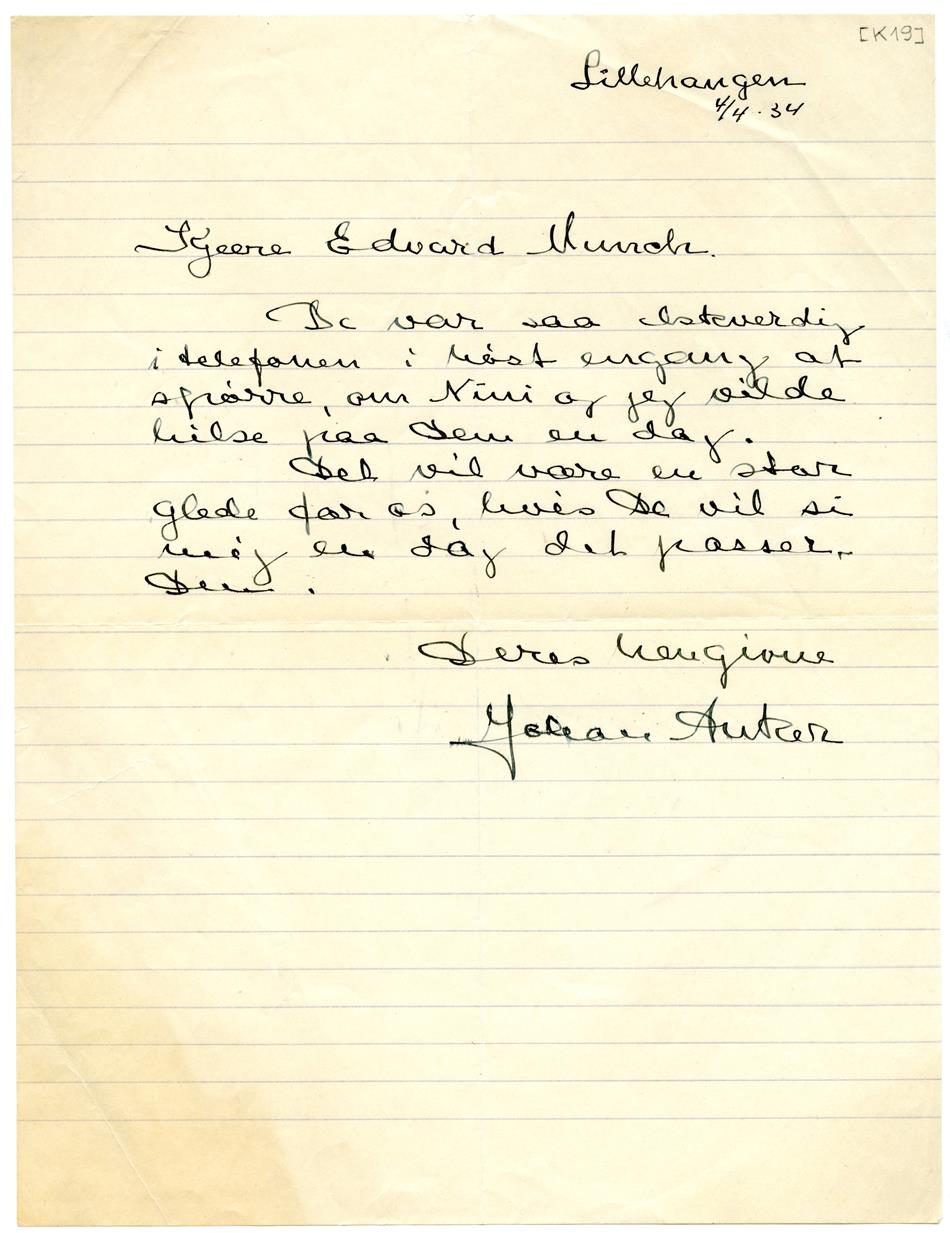 [K19]
Lillehaugen
4/4 · 34
Kjære Edvard Munch.
De var saa elskverdig
i telefonen i høst engang at
spørre, om Nini og jeg vilde
hilse paa Dem en dag.
Det vil være en stor
glede for os, hvis De vil si
mig en dag det passer
Dem.
Deres hengivne
Johan Anker